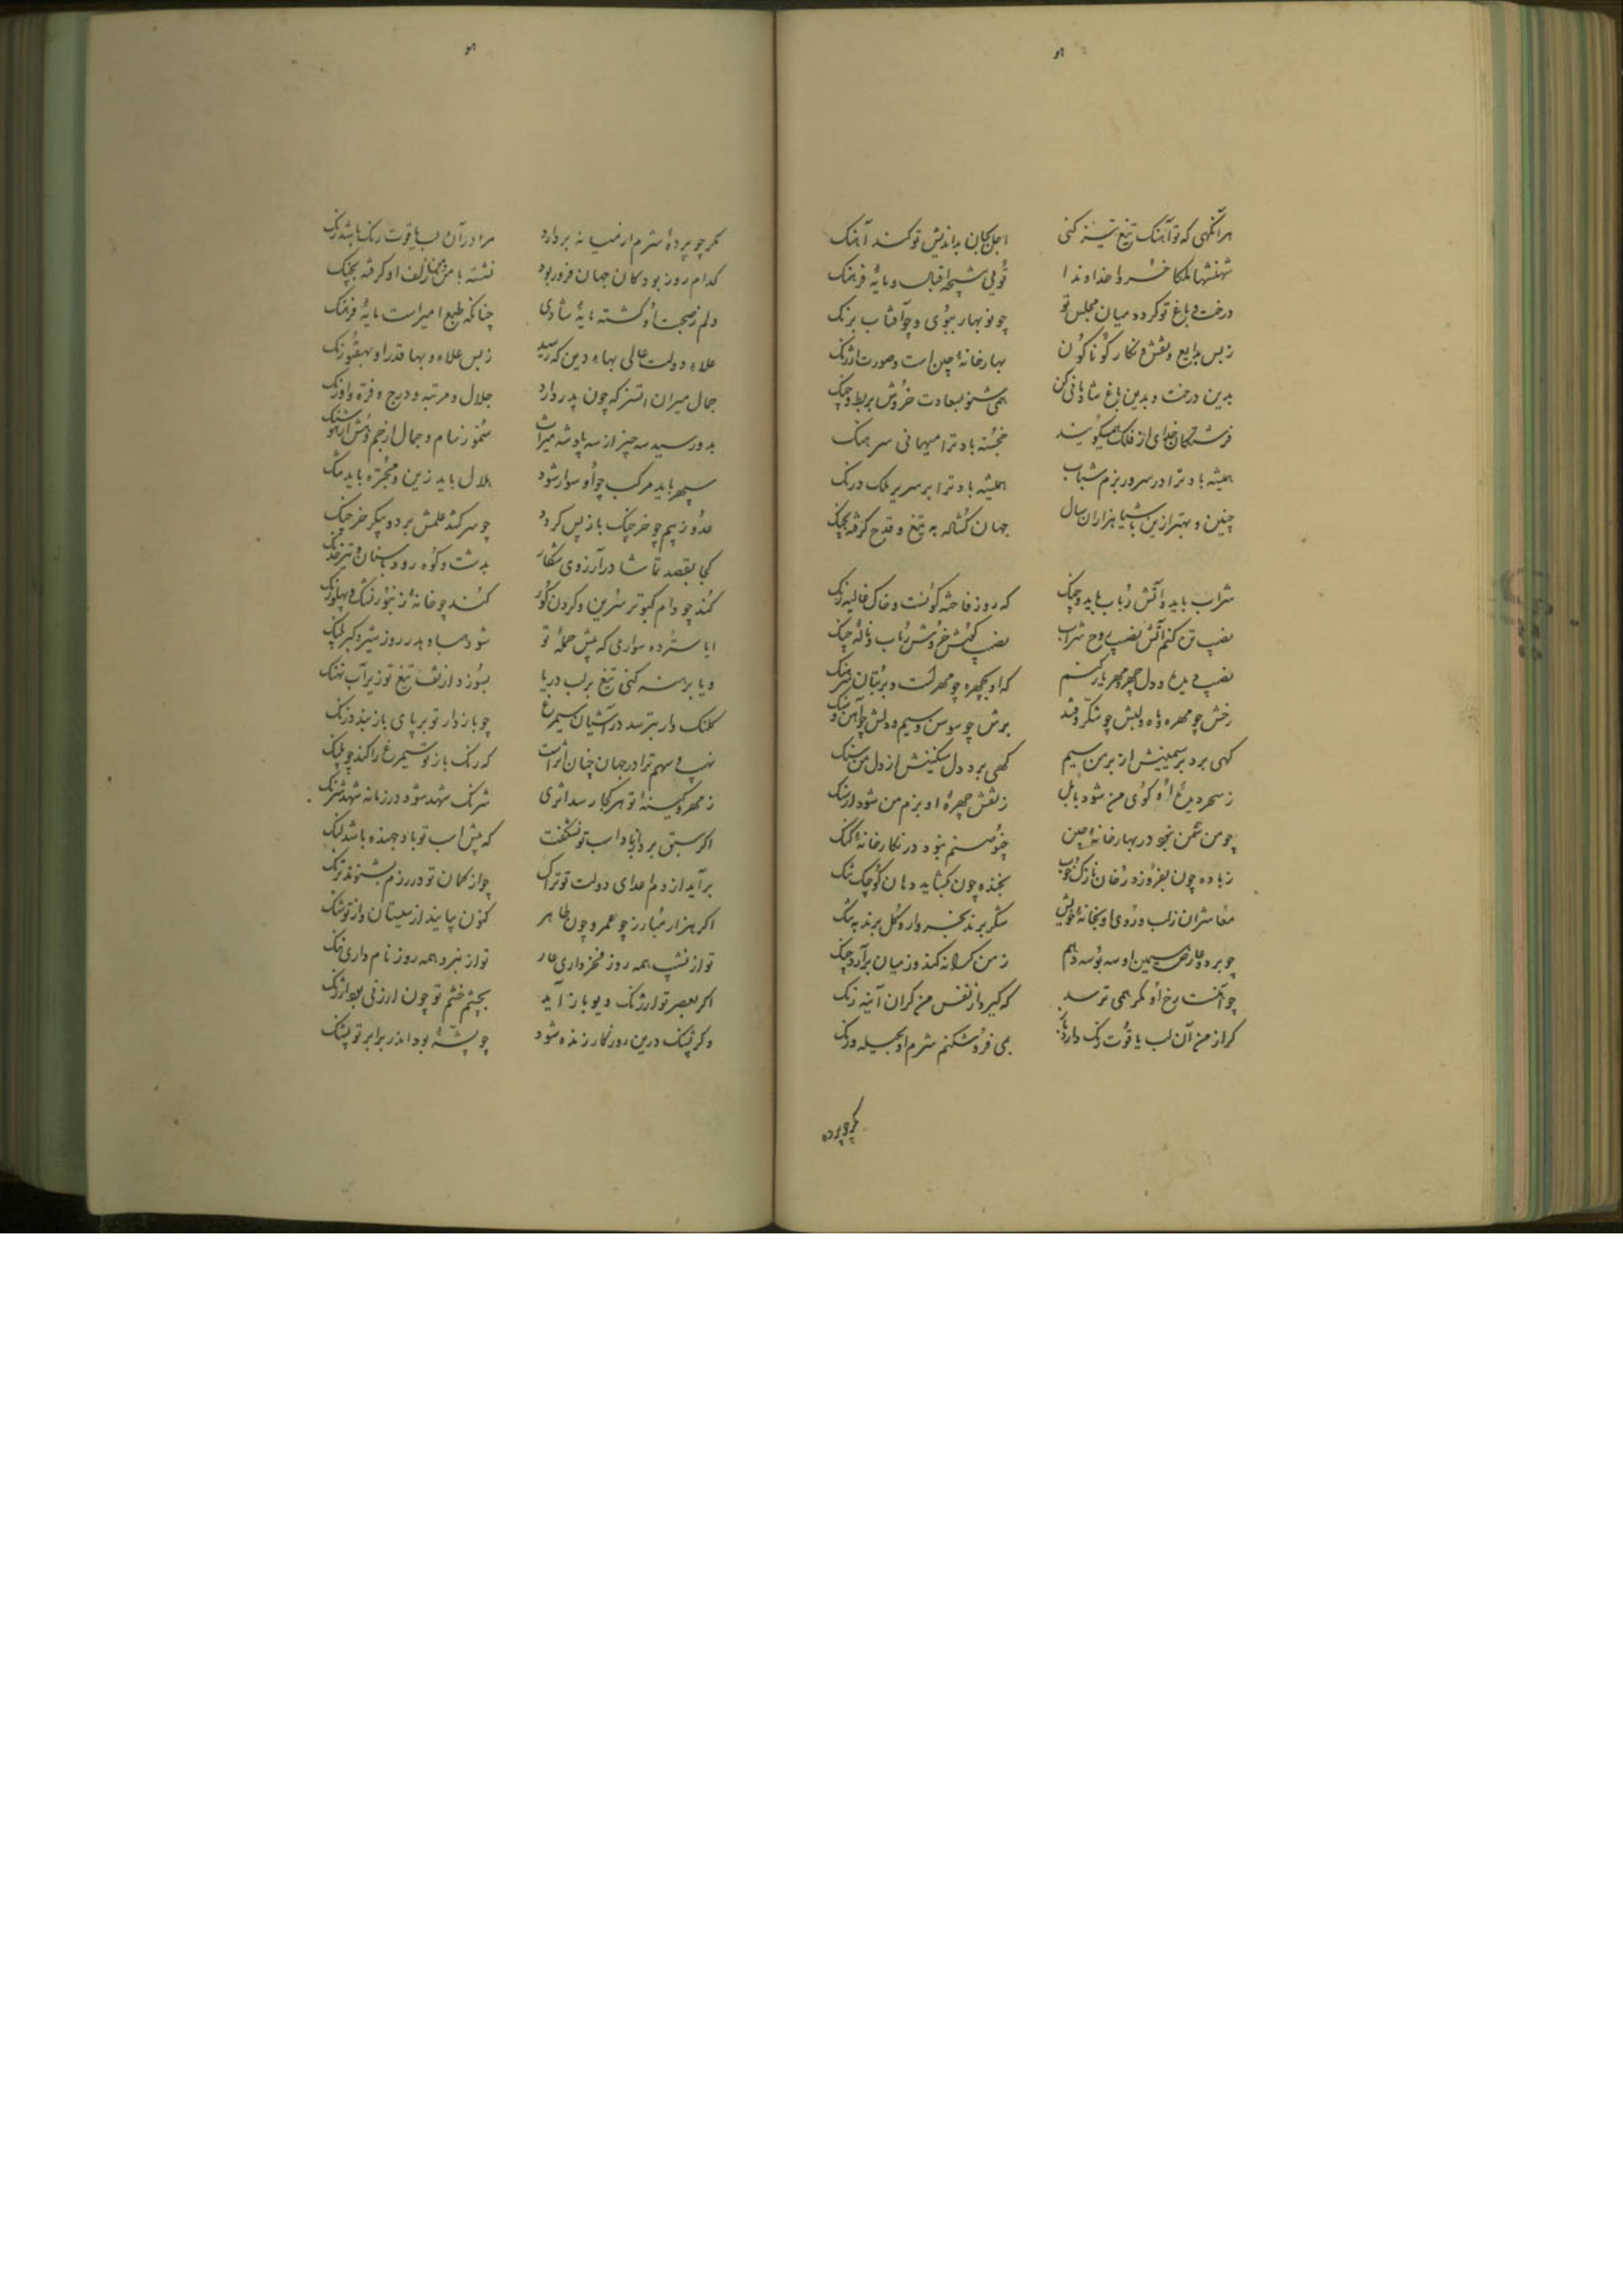 هو
هرآنگهی که تو آهنک تیغ تیز کنی
اجل بجان بداندیش تو کند آهنک
شهنشها ملکا خسروا خداوندا
توئی اقبال و مایهٔ فرهنک
درخت و باغ تو کرده میان مجلس تو
چو نوبهار ببوی و چو آفتاب برنک
ز بس بدایع و نقش و نکار کوناکون
بهارخانهٔ چین است و صورت ارژنک
بدین درخت و بدین باغ شادمانی کن
همی شنو بسعادت خروش بربط و چنک
فرشتکان خدای از فلک همیکویند
خجسته باد ترا میهمانی سرهنک
همیشه باد ترا در سرور بزم شتاب
همیشه باد ترا بر سریر ملک درنک
چنین و بهتر ازین باش هزاران سال
جهان کشاده به تیغ و قدح کرفته بچنک
شراب باید و آتش رباب باید و چنک
که روز فاخته کونست و خاک غالیه رنک
نصیب تن کنم آتش نصیب روح شراب
نصیب کوش خروش رباب و نالهٔ چنک
نصیب دیده و دل چهر و مهر یار کنم
که او بچهره چو مهرست و بر بتان سرهنک
رخش چو مهره و ماه و لبش چو شکر و قند
برش چو سوسن و سیم و دلش چو آهن و سنک
کهی برد بر سیمینش از بر من سیم
کهی برد دل سنکینش از دل من سنک
ز سحر دیدهٔ او کوی من شود بابل
ز نقش چهرهٔ او بزم من شود ارتنک
چو من شمن نبود در بهارخانهٔ چین
چنو صنم نبود در نکارخانهٔ کنک
ز باده چون بفروزد رخان نازک خوب
بخنده چون بکشاید دهان کوچک تنک
معاشران ز لب و روی او بخانهٔ خویش
شکر برند بخروار و کل برند به تنک
چو بر دو عارض سیمین او سه بوسه دهم
ز من کرانه کند وز میان برآرد چنک
چو آینست رخ او مکر همی ترسد
که کیرد از نفس من کران آینه زنک
کر از من آن لب یاقوت رنک دارد باز
بمی فروشکنم شرم او بحیله و رنک
مکر چو پرده
هو
مکر چو پردهٔ شرم از میانه بردارد
مرا در آن لب یاقوت رنک باشد رنک
کدام روز بود کان جهان فروز بود
نشسته با من و من زلف او کرفته بچنک
دلم ز صحبت او کشته مایهٔ شادی
چنانکه طبع امیر است مایهٔ فرهنک
علاء دولت عالی بهاء دین که رسید
ز بس علاء و بها قدر او بهفتورنک
جمال میران اتسز که چون پدر دارد
جلال و مرتبه و درج و فره و اورنک
بدو رسید سه چیز از سه پادشه میراث
سمو ز سام و جمال از جم و هش از هوشنک
سپهر باید مرکب چو او سوار شود
هلال باید زین و مجره باید تنک
عدو ز بیم چو خرچنک باز پس کردد
چو سر کشد علمش بر دو پیکر خرچنک
کجا بقصد تماشا در آرزوی شکار
بدشت و کوه رود با سنان و تیر خدنک
کند چو دام کبوتر سرین و کردن کور
کند چو خانهٔ زنبور نشک و پهلو رنک
ایا ستوده سواری که پیش حملهٔ تو
شود هبا و هدر روز شیر و کبر پلنک
و یا برهنه کنی تیغ بر لب دریا
بسوزد از تف تیغ تو زیر آب نهنک
کلنک وار بترسد در آشیان سیمرغ
چو بازدار تو بر پای باز بندد زنک
نهیب و سهم ترا در جهان چنان اثر است
که رنک باز تو سیمرغ را کند چو کلنک
ز مهر و کینهٔ تو هر کجا رسد اثری
شرنک شهد شود در زمانه شهد شرنک
اکر سبق برد از باد اسب تو نشکفت
که پیش اسب تو باد جهنده باشد لنک
برآید از دم اعدای دولت تو ترک
چو از کمان تو در رزم بشنوند ترنک
اکر هزار مبارز چو عمرو و چون طاهر
کنون بیایند از سیستان و از توشنک
تو از نشیب همه روز فخر داری عار
تو از نبرد همه روز نام داری ننک
اکر بعصر تو ارژنک دیو باز آید
بچشم خشم تو چون ارزنی بود ارژنک
وکر پشنک درین روزکار زنده شود
چو پشهٔ بود اندر برابر تو پشنک